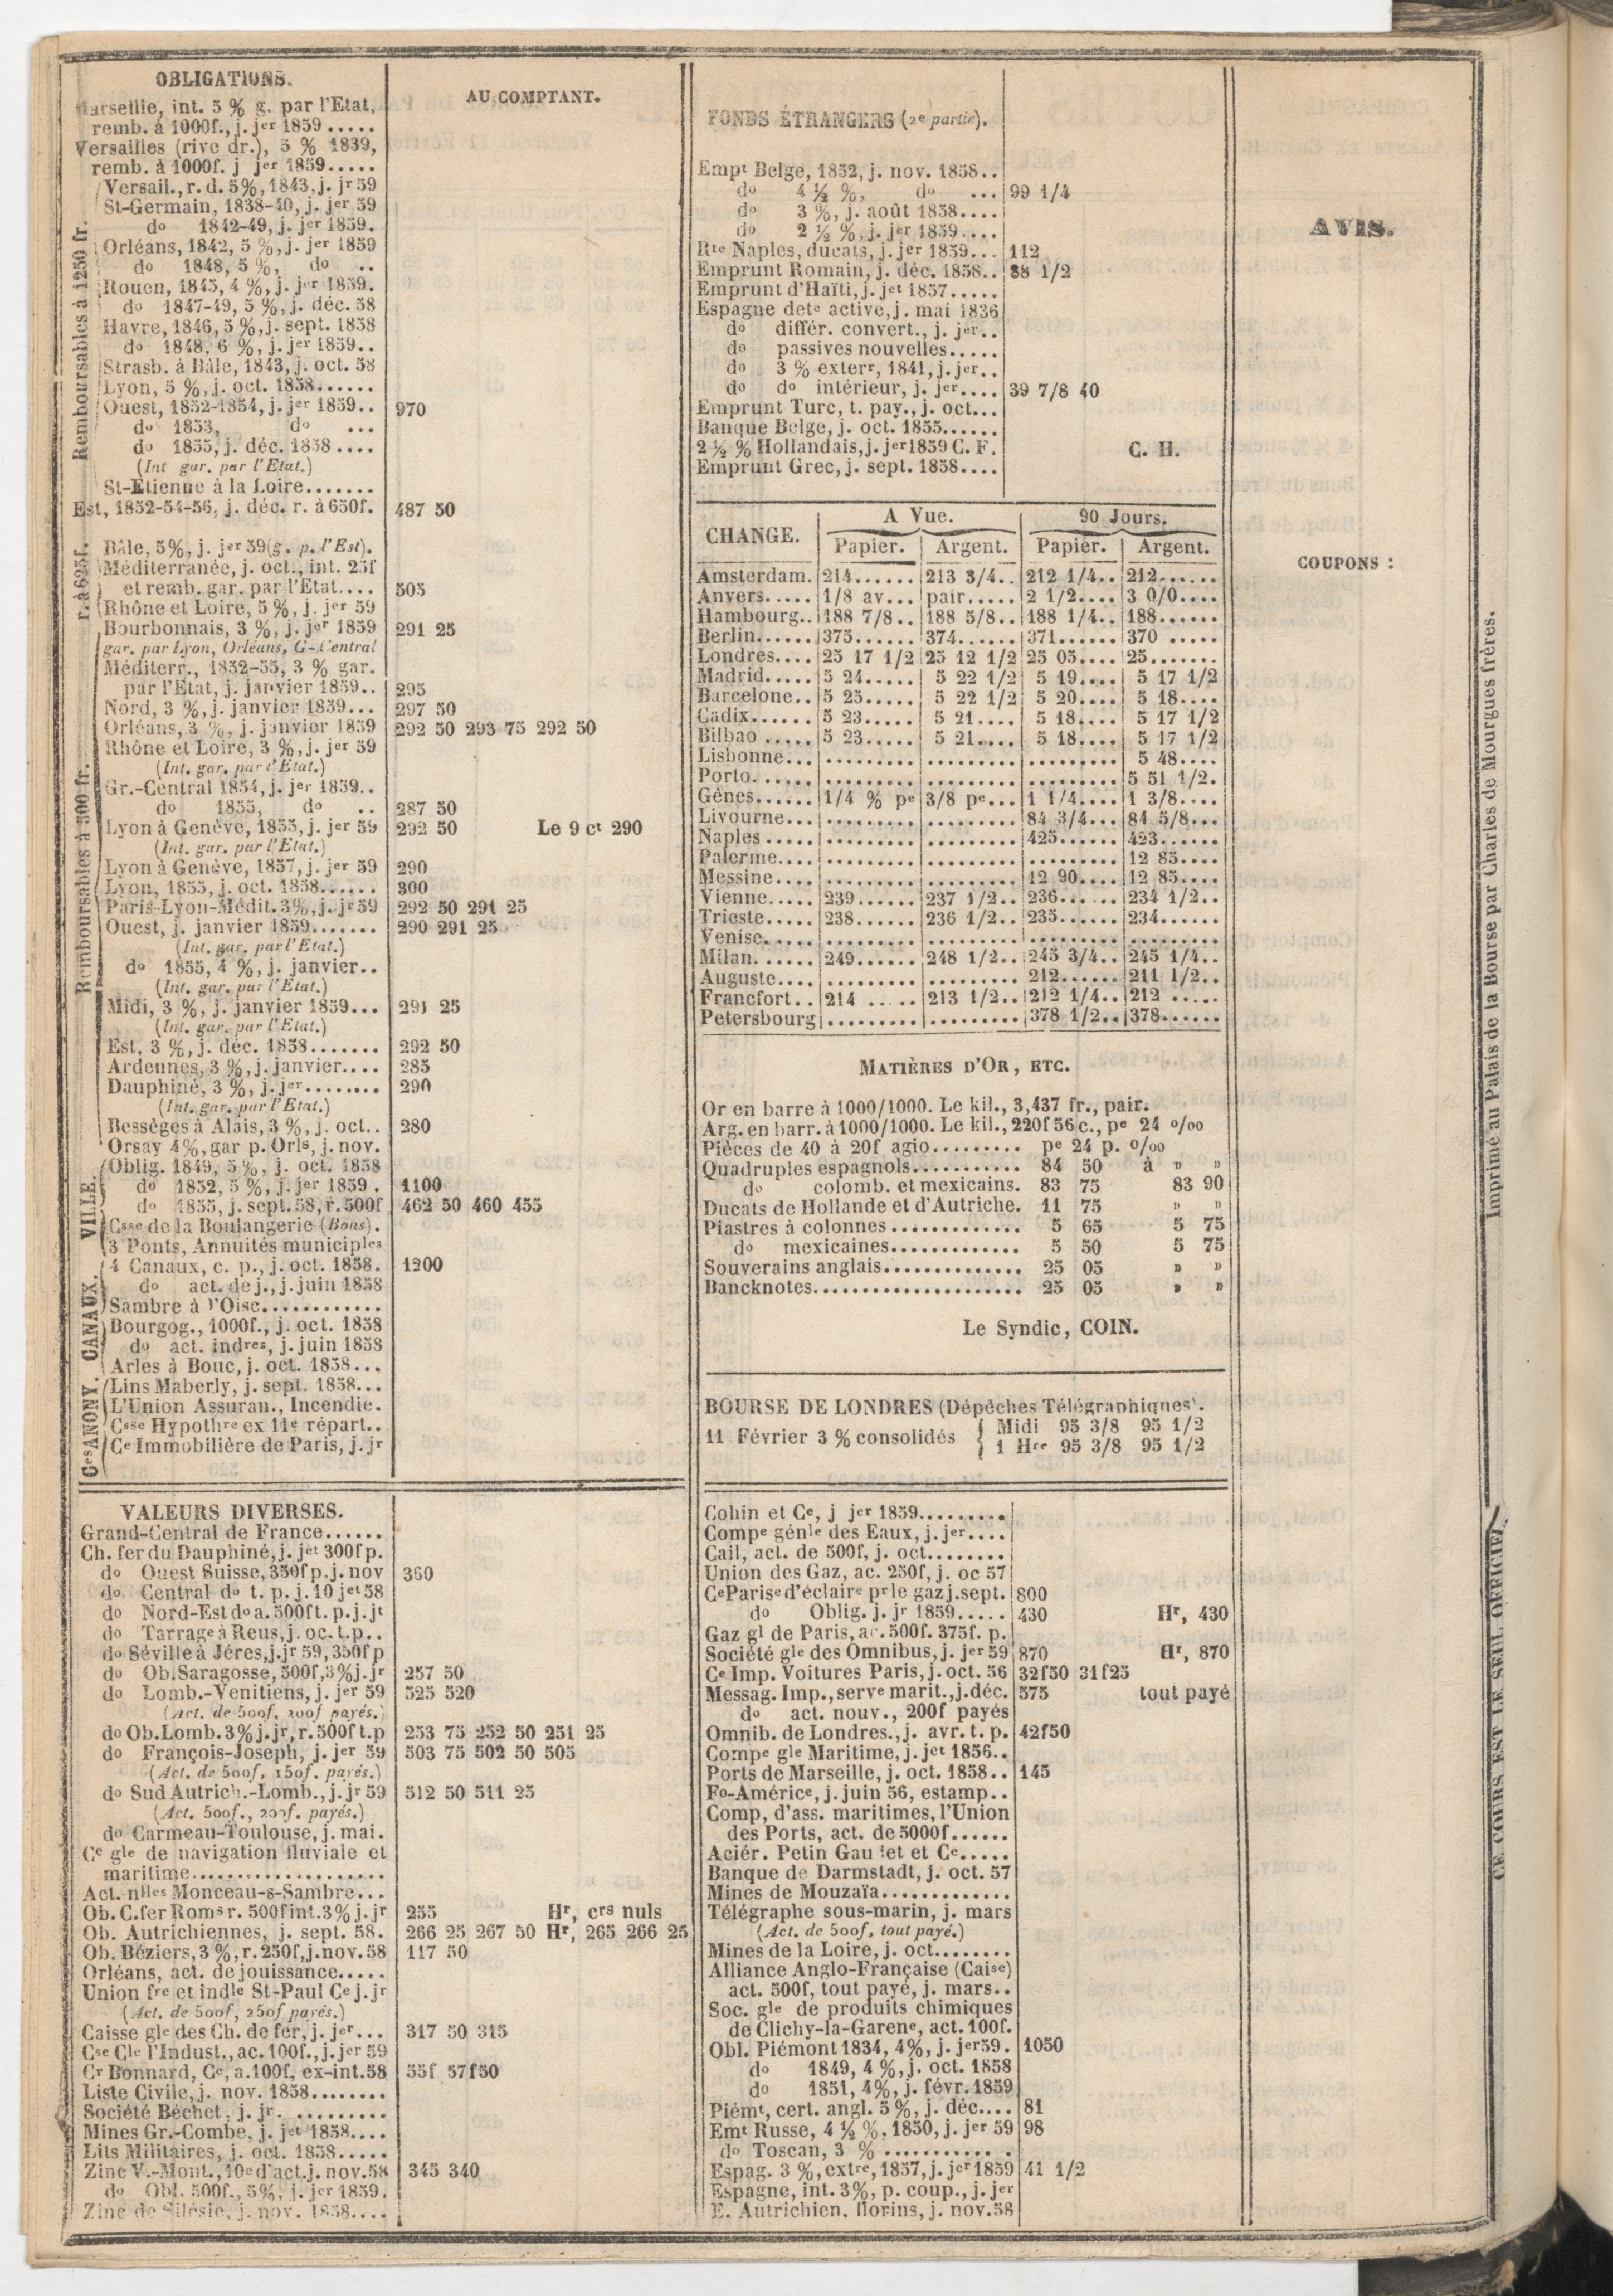 OBLIGATIONS.
AU COMPTANT.
Marseille, int. 5 % g. par l'Etat,
remb. à 1000f., j. jer 1859 .....
Versailles (rive dr.), 5 % 1839,
remb. à 1000f. j jer 1859.....
Remboursables à 1250 fr.
Versail., r. d. 5%, 1843, j. jr 59
St-Germain, 1838-40, j. jer 59
do 1842-49, j. jer 1859.
Orléans, 1842, 5 %, j. jer 1859
do 1848, 5 %, do ..
Rouen, 1845, 4 %, j. jer 1859.
do 1847-49, 5 %, j. déc. 58
Havre, 1846, 5 %, j. sept. 1858
do 1848, 6 %, j. jer 1859..
Strasb. à Bâle, 1843, j. oct. 58
Lyon, 5 %, j. oct. 1858......
Ouest, 1852-1854, j. jer 1859.. 970
do 1853, do ...
do 1855, j. déc. 1858 ....
(Int gar. par l'Etat.)
St-Etienne à la Loire.......
Est, 1852-54-56, j. déc. r. à 650f. 487 50
r. à 625f.
Bâle, 5%, j. jer 59 (g. p. l'Est).
Méditerranée, j. oct., int. 25f
et remb. gar. par l'Etat.... 505
Rhône et Loire, 5 %, j. jer 59
Remboursables à 500 fr.
Bourbonnais, 3 %, j. jer 1859 291 25
gar. par Lyon, Orléans, G-Central
Méditerr., 1852-55, 3 % gar.
par l'Etat, j. janvier 1859.. 295
Nord, 3 %, j. janvier 1859... 297 50
Orléans, 3 %, j. janvier 1859 292 50 293 75 292 50
Rhône et Loire, 3 %, j. jer 59
(Int. gar. par l'Etat.)
Gr.-Central 1854, j. jer 1859..
do 1855, do .. 287 50
Lyon à Genève, 1855, j. jer 59 292 50 Le 9 ct 290
(Int. gar. par l'Etat.)
Lyon à Genève, 1857, j. jer 59 290
Lyon, 1855, j. oct. 1858...... 300
Paris-Lyon-Médit. 3%, j. jr 59 292 50 291 25
Ouest, j. janvier 1859....... 290 291 25
(Int. gar. par l'Etat.)
do 1855, 4 %, j. janvier..
(Int. gar. par l'Etat.)
Midi, 3 %, j. janvier 1859... 291 25
(Int. gar. par l'Etat.)
Est, 3 %, j. déc. 1858....... 292 50
Ardennes, 3 %, j. janvier.... 285
Dauphiné, 3 %, j. jer........ 290
(Int. gar. par l'Etat.)
Bessèges à Alais, 3 %, j. oct.. 280
Orsay 4%, gar p. Orls, j. nov.
VILLE.
Oblig. 1849, 5 %, j. oct. 1858
do 1852, 5 %, j. jer 1859. 1100
do 1855, j. sept. 58, r. 500f 462 50 460 455
Csse de la Boulangerie (Bons).
3 Ponts, Annuités municiples
CANAUX.
4 Canaux, c. p., j. oct. 1858. 1200
do act. de j., j. juin 1858
Sambre à l'Oise............
Bourgog., 1000f., j. oct. 1858
do act. indres, j. juin 1858
Arles à Bouc, j. oct. 1858...
Ces ANONY.
Lins Maberly, j. sept. 1858...
L'Union Assuran., Incendie.
Csse Hypothre ex 11e répart..
Ce Immobilière de Paris, j. jr
VALEURS DIVERSES.
Grand-Central de France......
Ch. fer du Dauphiné, j. jet 300f p.
do Ouest Suisse, 350f p. j. nov 360
do Central do t. p. j. 10 jet 58
do Nord-Est do a. 500f t. p. j. jt
do Tarrage à Reus, j. oc. t. p..
do Séville à Jéres, j. jr 59, 350f p
do Ob. Saragosse, 500f, 3% j. jr 257 50
do Lomb.-Venitiens, j. jer 59 525 520
(Act. de 500f, 200f payés.)
do Ob. Lomb. 3% j. jr, r. 500f t. p 253 75 252 50 251 25
do François-Joseph, j. jer 59 503 75 502 50 505
(Act. de 500f, 150f. payés.)
do Sud Autrich.-Lomb., j. jr 59 512 50 511 25
(Act. 500f., 200f. payés.)
do Carmeau-Toulouse, j. mai.
Ce gle de navigation fluviale et
maritime...................
Act. nlles Monceau-s-Sambre...
Ob. C. fer Roms r. 500f int. 3% j. jr 255 Hr, crs nuls
Ob. Autrichiennes, j. sept. 58. 266 25 267 50 Hr, 265 266 25
Ob. Béziers, 3 %, r. 250f, j. nov. 58 117 50
Orléans, act. de jouissance.....
Union fre et indle St-Paul Ce j. jr
(Act. de 500f, 250f payés.)
Caisse gle des Ch. de fer, j. jer... 317 50 315
Cse Cle l'Indust., ac. 100f., j. jer 59
Cr Bonnard, Ce, a. 100f, ex-int. 58 55f 57f50
Liste Civile, j. nov. 1858........
Société Béchet, j. jr. .........
Mines Gr.-Combe, j. jet 1858....
Lits Militaires, j. oct. 1858.....
Zinc V.-Mont., 10e d'act. j. nov. 58 345 340
do Obl. 500f., 5%, j. jer 1859.
Zinc de Silésie, j. nov. 1858....
FONDS ÉTRANGERS (2e partie).
Empt Belge, 1852, j. nov. 1858..
do 4 ½ %, do ... 99 1/4
do 3 %, j. août 1858....
do 2 ½ %, j. jer 1859....
Rte Naples, ducats, j. jer 1859... 112
Emprunt Romain, j. déc. 1858.. 88 1/2
Emprunt d'Haïti, j. jet 1857.....
Espagne dete active, j. mai 1836
do différ. convert., j. jer..
do passives nouvelles.....
do 3 % exterr, 1841, j. jer..
do do intérieur, j. jer.... 39 7/8 40
Emprunt Turc, t. pay., j. oct...
Banque Belge, j. oct. 1855......
2 ½ % Hollandais, j. jer 1859 C. F. C. H.
Emprunt Grec, j. sept. 1858....
CHANGE. A Vue. 90 Jours.
Papier. Argent. Papier. Argent.
Amsterdam. 214...... 213 3/4.. 212 1/4.. 212......
Anvers..... 1/8 av... pair..... 2 1/2.... 3 0/0....
Hambourg.. 188 7/8.. 188 5/8.. 188 1/4.. 188......
Berlin...... 375...... 374...... 371...... 370 .....
Londres.... 25 17 1/2 25 12 1/2 25 05.... 25.......
Madrid..... 5 24..... 5 22 1/2 5 19.... 5 17 1/2
Barcelone.. 5 25..... 5 22 1/2 5 20.... 5 18....
Cadix...... 5 23..... 5 21.... 5 18.... 5 17 1/2
Bilbao ..... 5 23..... 5 21.... 5 18.... 5 17 1/2
Lisbonne... ......... ......... ......... 5 48....
Porto...... ......... ......... ......... 5 51 1/2.
Gênes...... 1/4 % pe 3/8 pe... 1 1/4.... 1 3/8....
Livourne... ......... ......... 84 3/4... 84 5/8...
Naples ..... ......... ......... 425...... 423......
Palerme.... ......... ......... ......... 12 85....
Messine.... ......... ......... 12 90.... 12 85....
Vienne..... 239...... 237 1/2.. 236...... 234 1/2..
Trieste..... 238...... 236 1/2.. 235...... 234......
Venise..... ......... ......... ......... .........
Milan...... 249...... 248 1/2.. 245 3/4.. 245 1/4..
Auguste.... ......... ......... 212...... 211 1/2..
Francfort.. 214 ..... 213 1/2.. 212 1/4.. 212 .....
Petersbourg ......... ......... 378 1/2.. 378......
MATIÈRES D'OR, ETC.
Or en barre à 1000/1000. Le kil., 3,437 fr., pair.
Arg. en barr. à 1000/1000. Le kil., 220f 56 c., pe 24 0/00
Pièces de 40 à 20f agio......... pe 24 p. 0/00
Quadruples espagnols........... 84 50 à » »
do colomb. et mexicains. 83 75 83 90
Ducats de Hollande et d'Autriche. 11 75 » »
Piastres à colonnes............. 5 65 5 75
do mexicaines............. 5 50 5 75
Souverains anglais.............. 25 05 » »
Bancknotes..................... 25 05 » »
Le Syndic, COIN.
BOURSE DE LONDRES (Dépêches Télégraphiques).
11 Février 3 % consolidés { Midi 95 3/8 95 1/2
1 Hre 95 3/8 95 1/2
Cohin et Ce, j jer 1859.........
Compe génle des Eaux, j. jer....
Cail, act. de 500f, j. oct........
Union des Gaz, ac. 250f, j. oc 57
Ce Parise d'éclaire pr le gaz j. sept. 800
do Oblig. j. jr 1859..... 430 Hr, 430
Gaz gl de Paris, ac. 500f. 375f. p.
Société gle des Omnibus, j. jer 59 870 Hr, 870
Ce Imp. Voitures Paris, j. oct. 56 32f50 31f25
Messag. Imp., serve marit., j. déc. 575 tout payé
do act. nouv., 200f payés
Omnib. de Londres., j. avr. t. p. 42f50
Compe gle Maritime, j. jet 1856..
Ports de Marseille, j. oct. 1858.. 145
Fo-Américe, j. juin 56, estamp..
Comp, d'ass. maritimes, l'Union
des Ports, act. de 5000f......
Aciér. Petin Gaudet et Ce.....
Banque de Darmstadt, j. oct. 57
Mines de Mouzaïa.............
Télégraphe sous-marin, j. mars
(Act. de 500f, tout payé.)
Mines de la Loire, j. oct........
Alliance Anglo-Française (Caise)
act. 500f, tout payé, j. mars..
Soc. gle de produits chimiques
de Clichy-la-Garene, act. 100f.
Obl. Piémont 1834, 4%, j. jer 59. 1050
do 1849, 4 %, j. oct. 1858
do 1851, 4%, j. févr. 1859
Piémt, cert. angl. 5 %, j. déc.... 81
Emt Russe, 4 ½ %, 1850, j. jer 59 98
do Toscan, 3 % ............
Espag. 3 %, extre, 1857, j. jer 1859 41 1/2
Espagne, int. 3%, p. coup., j. jer
E. Autrichien, florins, j. nov. 58
AVIS.
COUPONS :
Imprimé au Palais de la Bourse par Charles de Mourgues frères.
CE COURS EST LE SEUL OFFICIEL.